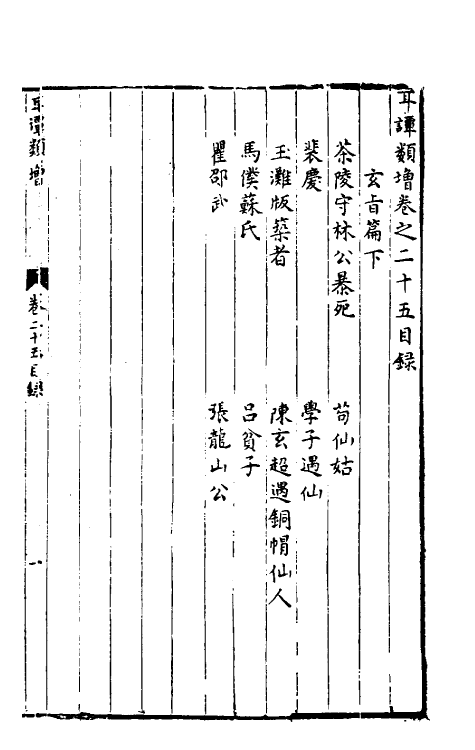 耳譚類增卷之二十五目錄
玄旨篇下
茶陵守林公暴死　苟仙姑
裴慶　學子遇仙
玉灘版築者　陳玄超遇銅帽仙人
馬僕蘇氏　呂貧子
瞿邵武　張龍山公
耳譚類增
卷二十五目錄
一